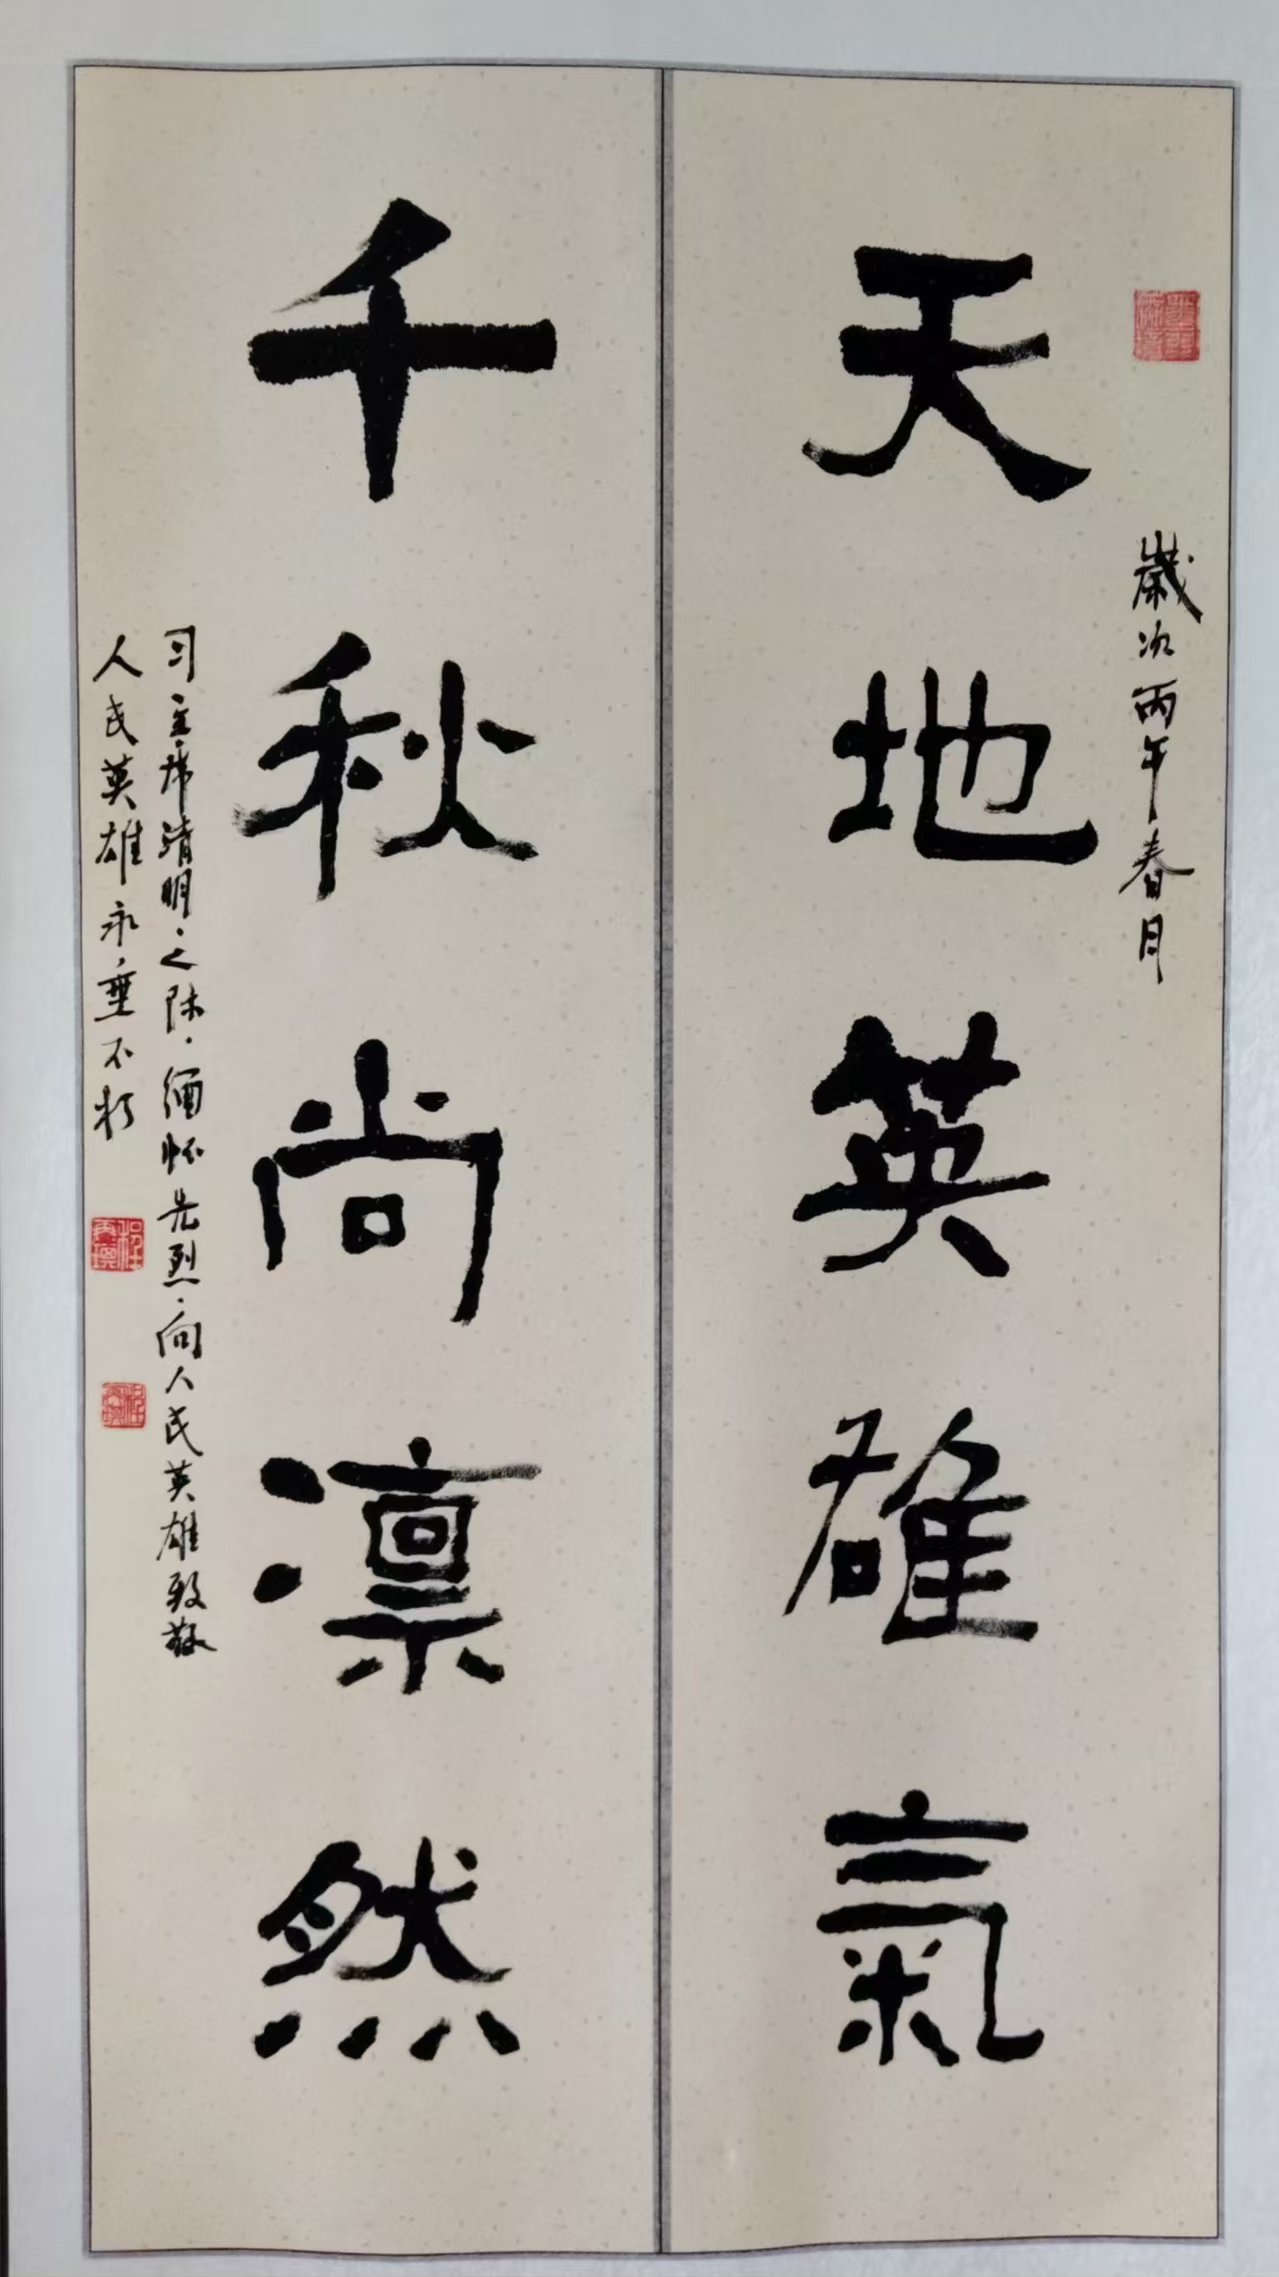 歲次丙午春月
天地英雄氣
千秋尚凛然
习主席清明之际缅怀先烈向人民英雄致敬
人民英雄永垂不朽